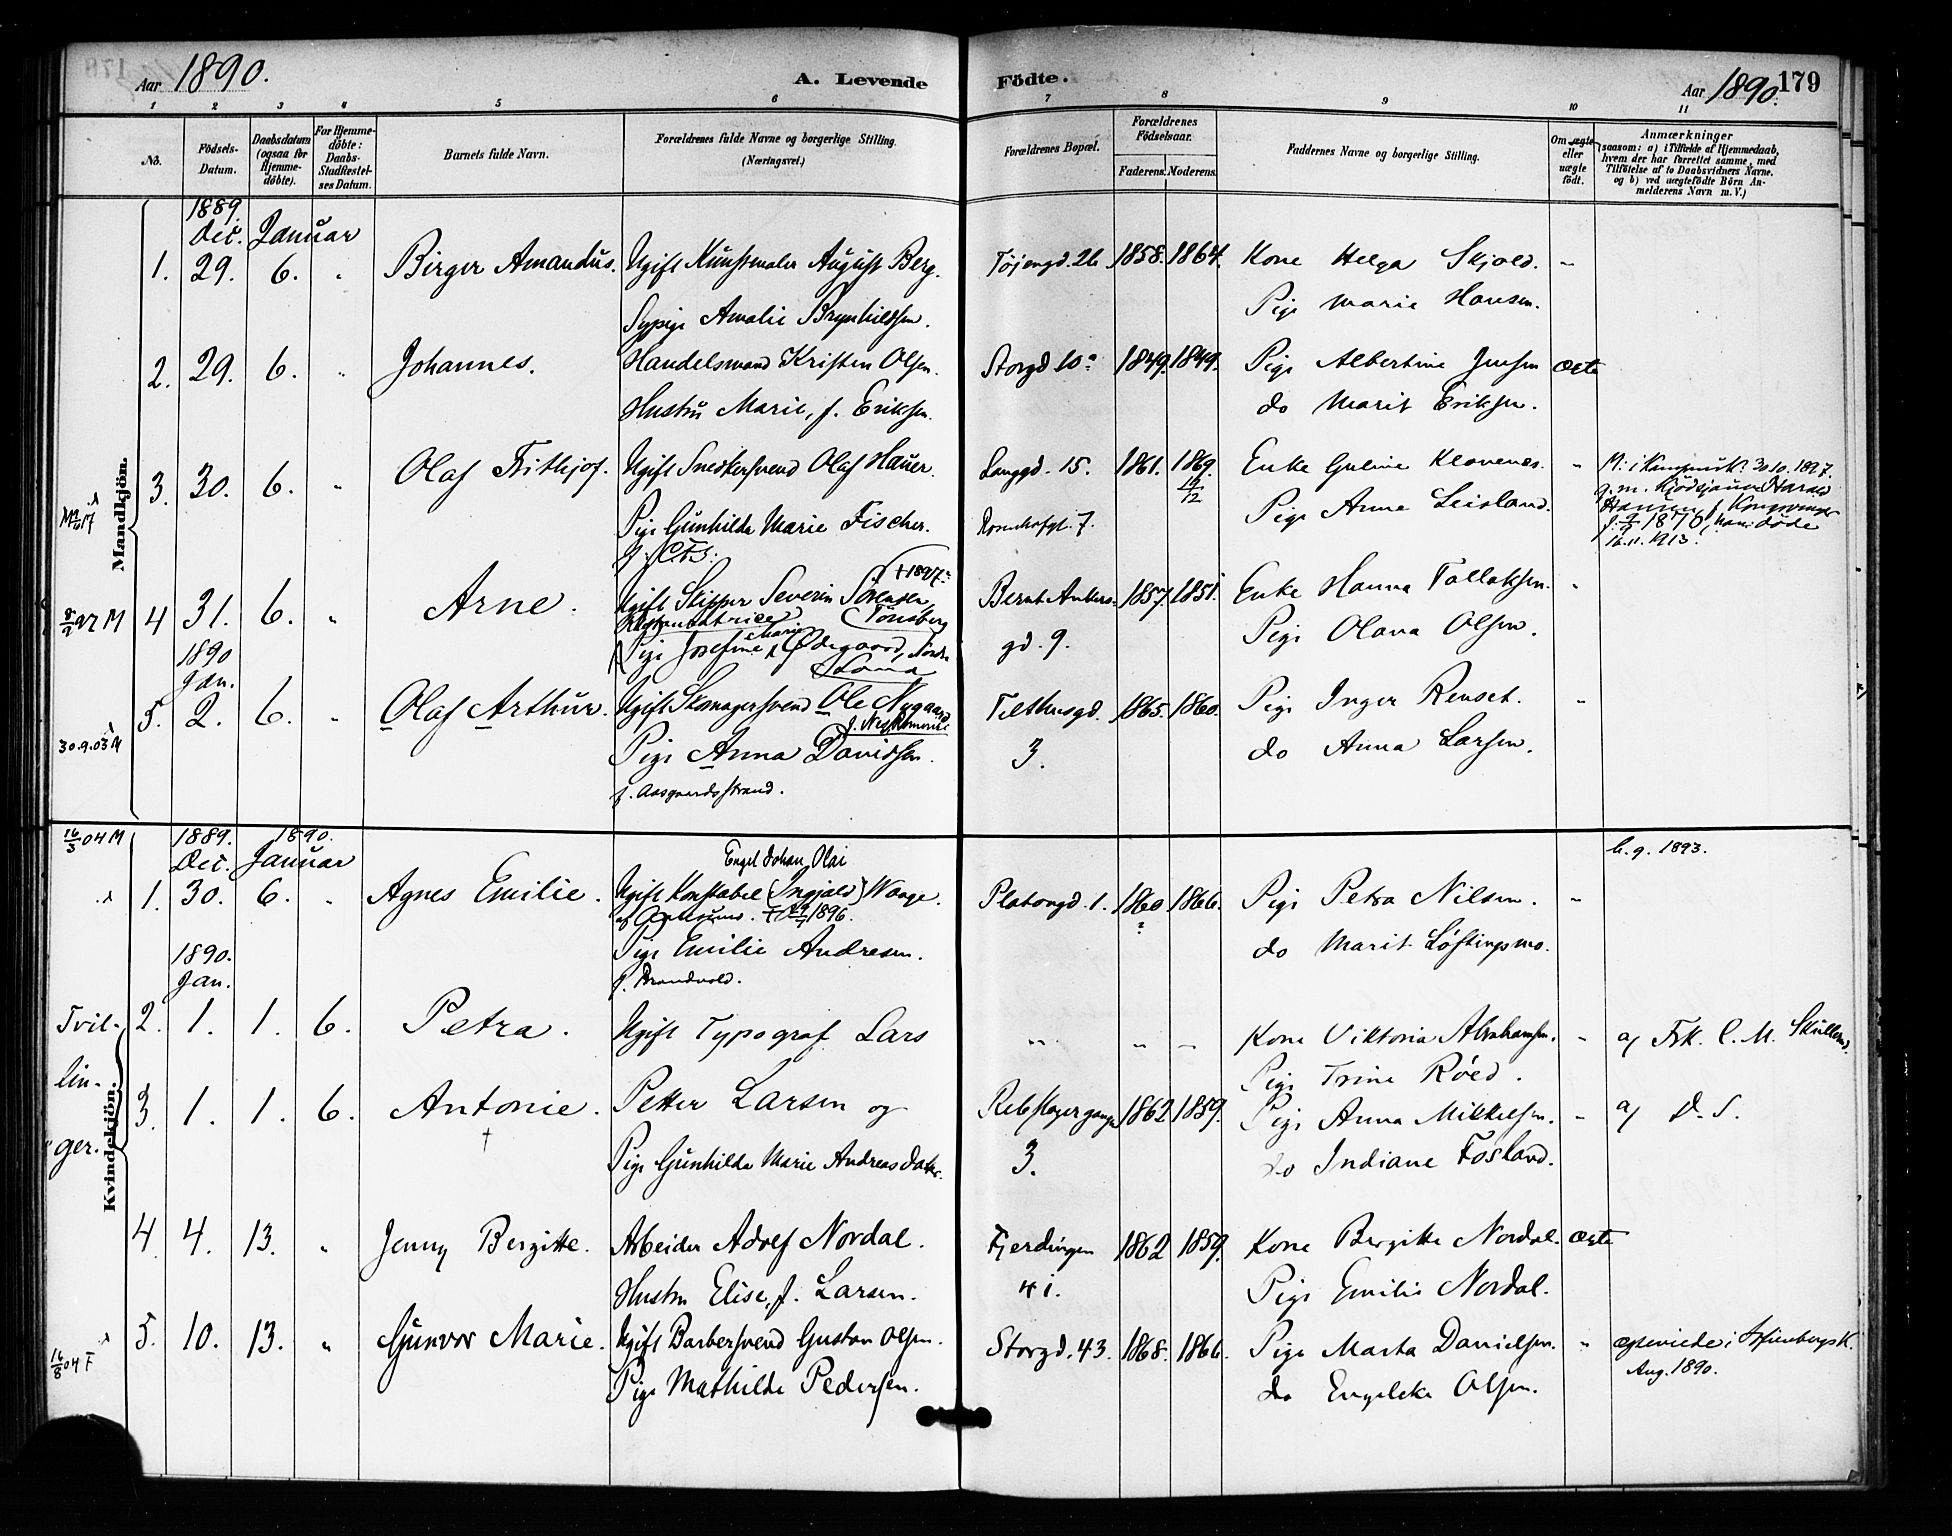 178
Aar 1890.
A. Levende Födte.
Aar 1890. 179
1 2 3 4 5 6 7 8 9 10 11
No.
Födsels-Datum.
Daabsdatum (ogsaa for Hjemme-döbte).
For Hjemme-döbte: Daabs-Stadfæstel-ses Datum.
Barnets fulde Navn.
Forældrenes fulde Navne og borgerlige Stilling. (Næringsvei.)
Forældrenes Bopæl.
Forældrenes Födselsaar.
Faderens. Moderens.
Faddernes Navne og borgerlige Stilling.
Om ægte eller uægte födt.
Anmærkninger
(saasom: a) i Tilfælde af Hjemmedaab,
hvem der har forrettet samme, med
Tilföielse af to Daabsvidners Navne.
og b) ved uægtefödte Börn An-
melderens Navn m. V.)
Mandkjön.
1889. Dec. Januar
1. 29. 6. " Birger Amandus. Ugift Kunstmaler August Berg. Töjengd. 26 1858. 1864. Kone Helga Skjold. "
Sypige Amalie Brynhildsen. Pige Marie Hansen.
2. 29. 6. " Johannes. Handelsmand Kristen Olsen. Storgd 10a 1849. 1849. Pige Albertine Jensen ægte
Hustru Marie, f. Eriksen. do Marit Eriksen.
3. 30. 6. " Olaf Frithjof. Ugift Snedkersvend Olaf Hauer. Langgd. 15. 1861. 1869. 19/12 Enke Guline Klovenes. "
Pige Gunhilda Marie Fischer. Rosenhofgt. 7. Pige Anna Leisland.
M: i Kampensk. 30.10.1897.
g. m. Harald
Hansen f. Kongsvinger
1870, han döde
16.11.1913.
8/2 97 M 4 31. 6. " Arne. Ugift Skipper Severin Sörensen, Tönsberg + 1897. Bernt Ankers- 1857. 1851. Enke Hanna Tallaksen. "
Pige Josefine Marie Ödegaard, Nordre Land gd. 9. Pige Olava Olsen.
1890 Jan.
5. 2. 6. " Olaf Arthur. Ugift Skomagersvend Ole Nygaard Tilthusgd. 1865. 1860. Pige Inger Renset. "
30.9.03 M
Pige Anna Davidsen. 3. do Anna Larsen.
f. Aasgaardsstrand.
Kvindekjön.
16/3 04 M
1889. Dec. 1890. Januar
b. g. 1893.
Engel Johan Olai
1. 30. 6. " Agnes Emilie. Ugift Konstabel (Ingjald) Waage. Platougd. 1. 1860 ? 1866. Pige Petra Nilsen. "
1896.
Pige Emilie Andresen. do Marit Löftingsmo.
f. Brandvold.
1890. Jan.
Tvil-
2. 1. 1. 6. Petra. Ugift Typograf Lars " " " Kone Viktoria Abrahamsen. " af Frk. C. M. Skullerud.
Pige Trine Röed.
lin-
3. 1. 1. 6. Antonie. † Petter Larsen og Rebslagergangen 1862 1859. Pige Anna Mikkelsen. " af d. s.
ger.
Pige Gunhilda Marie Andreasdatter. 3. do Indiane Fosland.
4. 4. 13. " Jenny Bergitte. Arbeider Adolf Nordal. Fjerdingen 1862 1859. Kone Bergitte Nordal. ægte
Hustru Elise, f. Larsen. 41. Pige Emilie Nordal.
5. 10. 13. " Gunvor Marie. Ugift Barbersvend Gustav Olsen. Storgd. 43. 1868. 1866. Pige Marta Danielsen. " ægteviede i Sofienbergs K.
16/8 04 F
Pige Mathilde Pedersen. do Engelska Olsen. Aug. 1890.